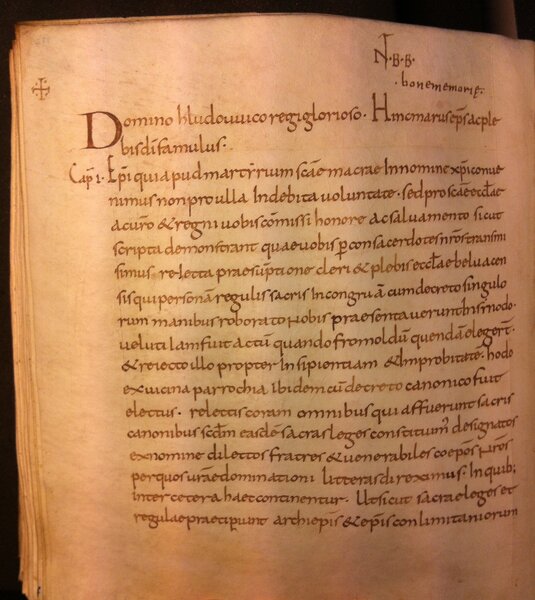 N·B·B·
·bonememorię·
Domino hludouuico regi glorioso· Hincmarus ep̄s ac ple
bis dī famulus·
Cap̄ I· Ep̄i qui apud martyrium sc̄ae macrae In nomine xp̄i conue
nimus non pro ulla Indebita uoluntate· sed pro sc̄ae eccl̄ae
ac ur̄o & regni uobis cōmissi honore ac saluamento sicut
scripta demonstrant quae uobis p̄ consacerdotes nr̄os transmi
simus· relecta praesūptione cleri & plebis eccl̄ae beluacen
sis qui personā regulis sacris Incongruā cum decreto singulo
rum manibus roborato nobis praesentauerunt· In hismodo·
ueluti Iam fuit actū quando fromoldū quendā elegert̄·
& reiecto illo propter Insipientiam & Improbitatē· hodo
ex uicina parrochia Ibidem cū decreto canonico fuit
electus· relectis coram omnibus qui affuerunt sacris
canonibus sc̄dm easdē sacras leges constitutum̄ designatos
ex nomine dilectos fratres & uenerabiles coep̄os nr̄os
per quos urāe dominationi litteras direximus· In quib;
Inter cetera haec continentur· Ut sicut sacrae leges et
regulae praecipiunt archiep̄is & ep̄is conlimitaneorum